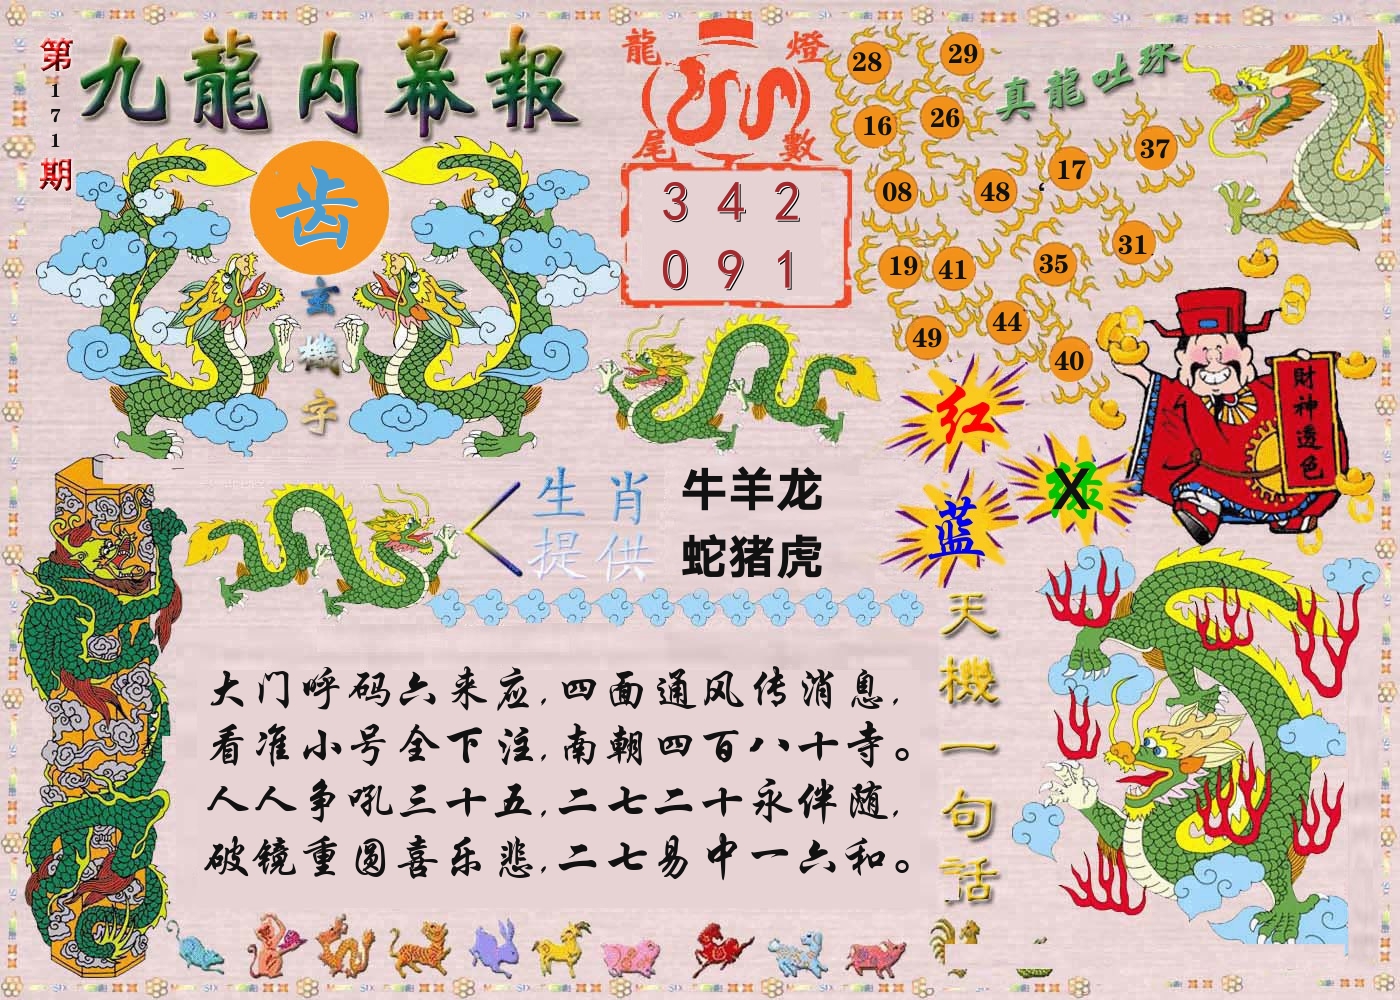 第171期
九龍内幕報
齿
玄機字
龍燈
尾數
3 4 2
0 9 1
28 29
16 26
08 48 17 37
19 41 35 31
49 44 40
真龍吐珠
財神透色
红
绿
X
蓝
生肖
提供
牛羊龙
蛇猪虎
天機一句話
大门呼码六来应,四面通风传消息,
看准小号全下注,南朝四百八十寺。
人人争吼三十五,二七二十永伴随,
破镜重圆喜乐悲,二七易中一六和。